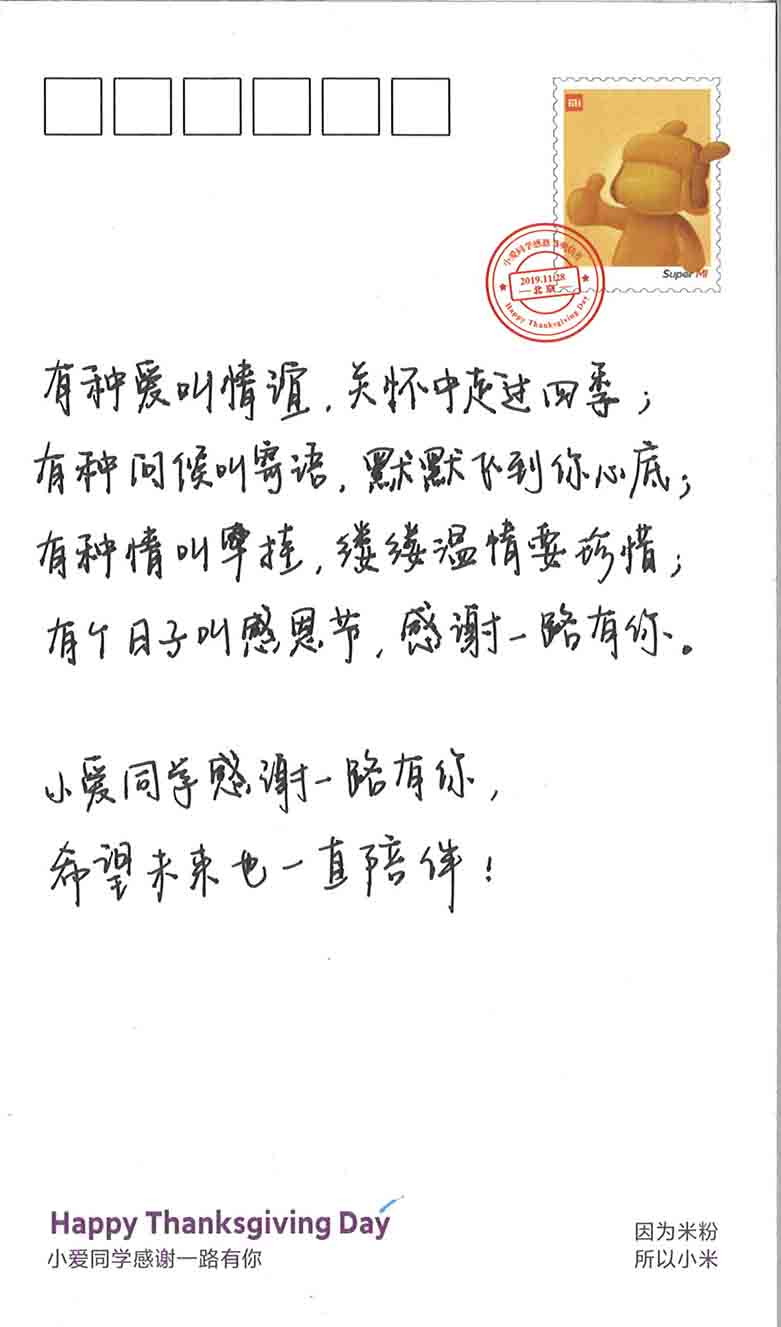 MI
Super MI
小爱同学感恩节明信片
2019.11.28
北京
Happy Thanksgiving Day
有种爱叫情谊，关怀中走过四季；
有种问候叫寄语，默默飞到你心底；
有种情叫牵挂，缕缕温情要珍惜；
有个日子叫感恩节，感谢一路有你。
小爱同学感谢一路有你，
希望未来也一直陪伴！
Happy Thanksgiving Day
小爱同学感谢一路有你
因为米粉
所以小米